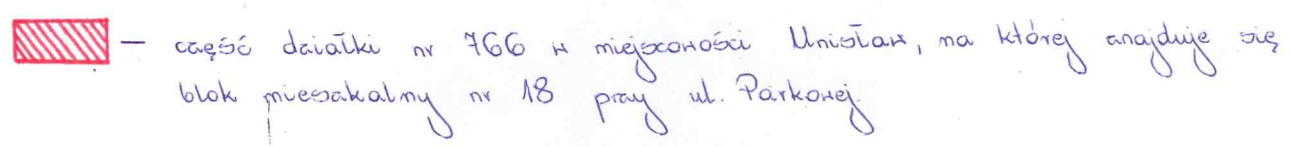 – część działki nr 766 w miejscowości Unisław, na której znajduje się
blok mieszkalny nr 18 przy ul. Parkowej.